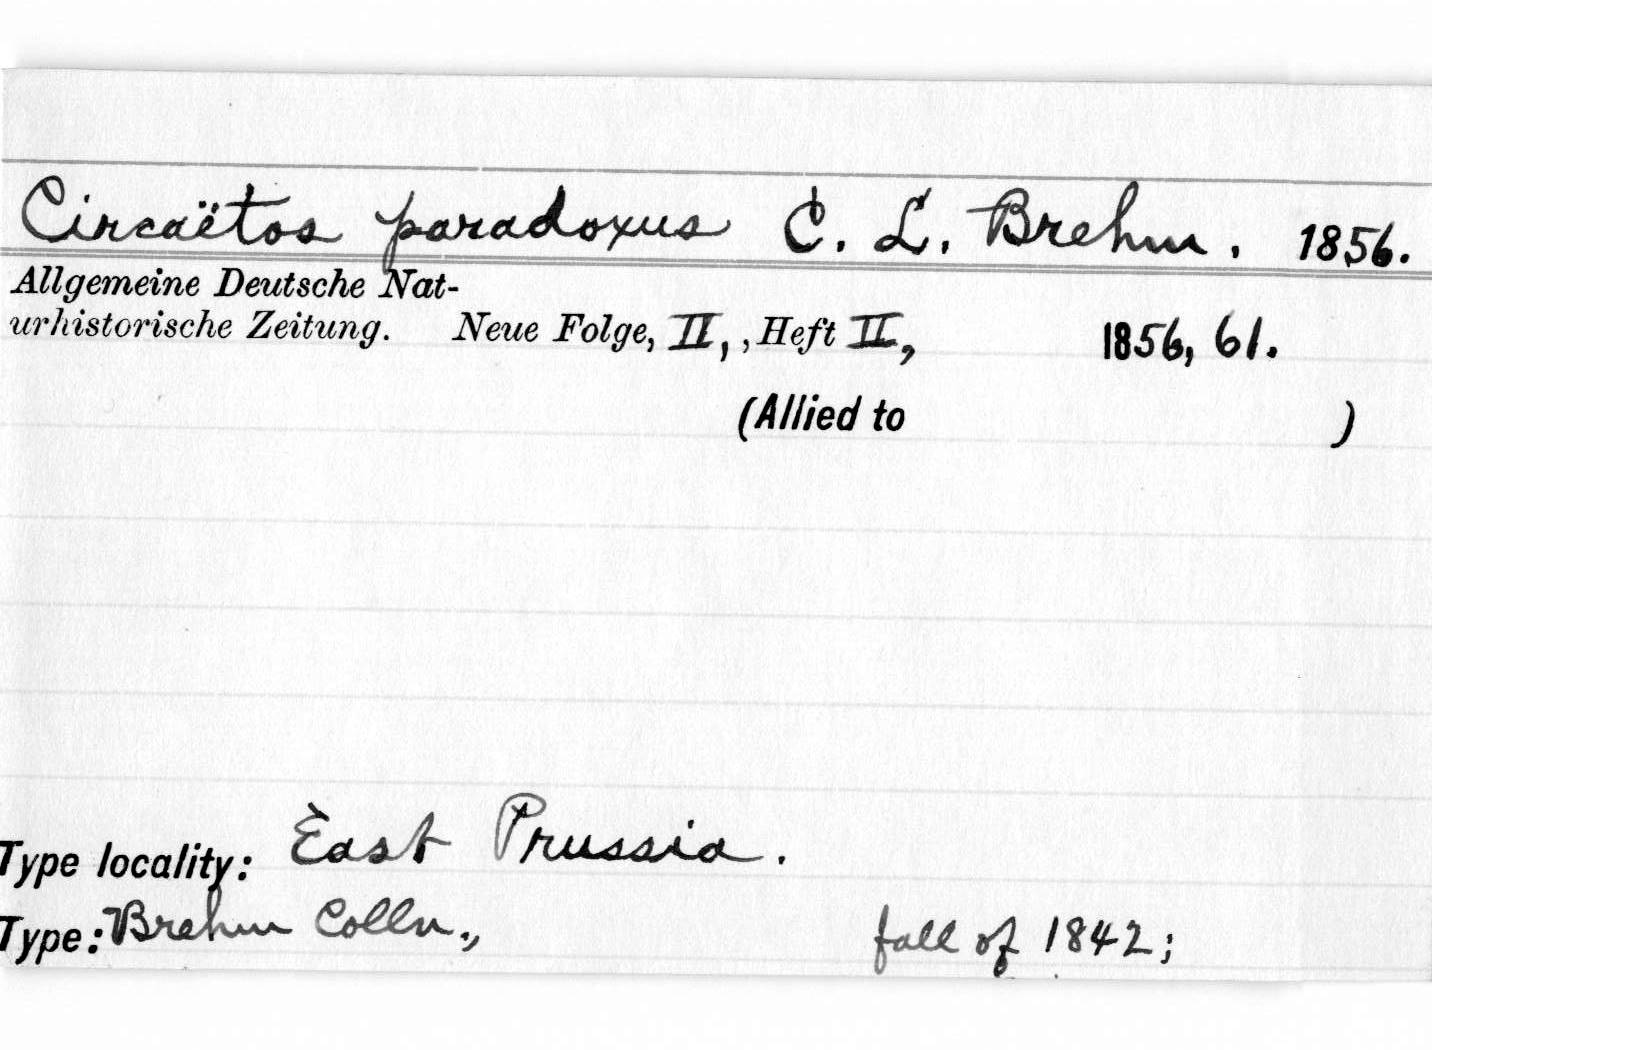 Circaëtos paradoxus C. L. Brehm. 1856.
Allgemeine Deutsche Nat-
urhistorische Zeitung. Neue Folge, II, , Heft II, 1856, 61.
(Allied to )
Type locality: East Prussia.
Type: Brehm Colln., fall of 1842;